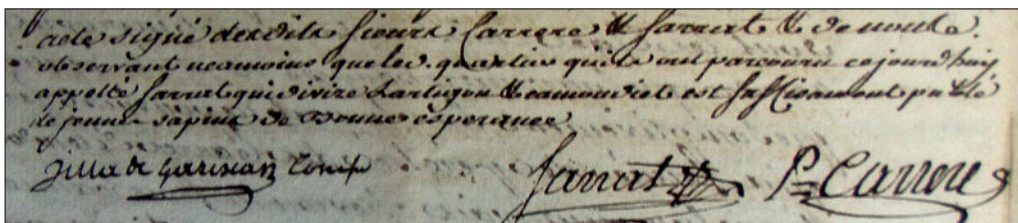 acte signé desdits sieurs Carrere & Sarrat & de nous.
observant neamoins que le quartier qu'ils ont parcouru cejourdhuy
appellé Sarrat qui divize Lartigon & est suffisament puplé
de jeunes sapins de bonne esperance
Sarrat P. Carrere